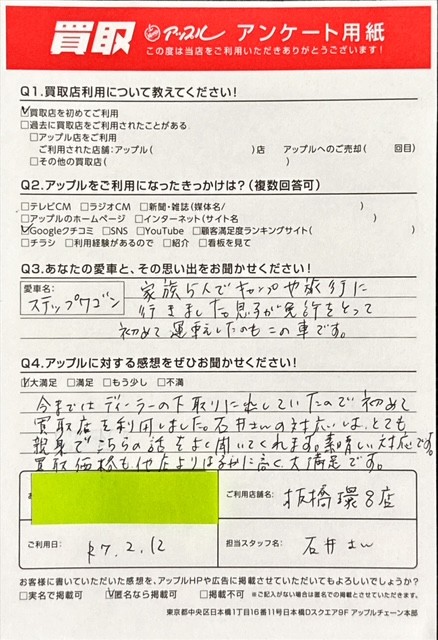 買取 アップル アンケート用紙
この度は当店をご利用いただきありがとうございます!
Q1.買取店利用について教えてください!
☑買取店を初めてご利用
□過去に買取店をご利用されたことがある
□アップル店をご利用
ご利用された店舗:アップル( )店 アップルへのご売却( 回目)
□その他の買取店( )
Q2.アップルをご利用になったきっかけは?(複数回答可)
□テレビCM □ラジオCM □新聞・雑誌(媒体名/ )
□アップルのホームページ □インターネット(サイト名 )
☑Googleクチコミ □SNS □YouTube □顧客満足度ランキングサイト( )
□チラシ □利用経験があるので □紹介 □看板を見て
Q3.あなたの愛車と、その思い出をお聞かせください!
愛車名:
ステップワゴン
家族5人でキャンプや旅行に
行きました。息子が免許をとって
初めて運転したのもこの車です。
Q4.アップルに対する感想をぜひお聞かせください!
☑大満足 □満足 □もう少し □不満
今まではディーラーの下取りに出していたので初めて
買取店を利用しました。石井さんの対応はとても
親身でこちらの話をよく聞いてくれます。素晴しい対応です。
買取価格も他店よりは別に高く大満足です。
お
ご利用店舗名:
板橋環8店
ご利用日:
R7.2.12
担当スタッフ名:
石井さん
お客様に書いていただいた感想を、アップルHPや広告に掲載させていただいてもよろしいでしょうか?
□実名で掲載可 ☑匿名なら掲載可 □掲載不可 ※ご記入がない場合は匿名での掲載とさせていただきます。
東京都中央区日本橋1丁目16番11号日本橋Dスクエア9F アップルチェーン本部